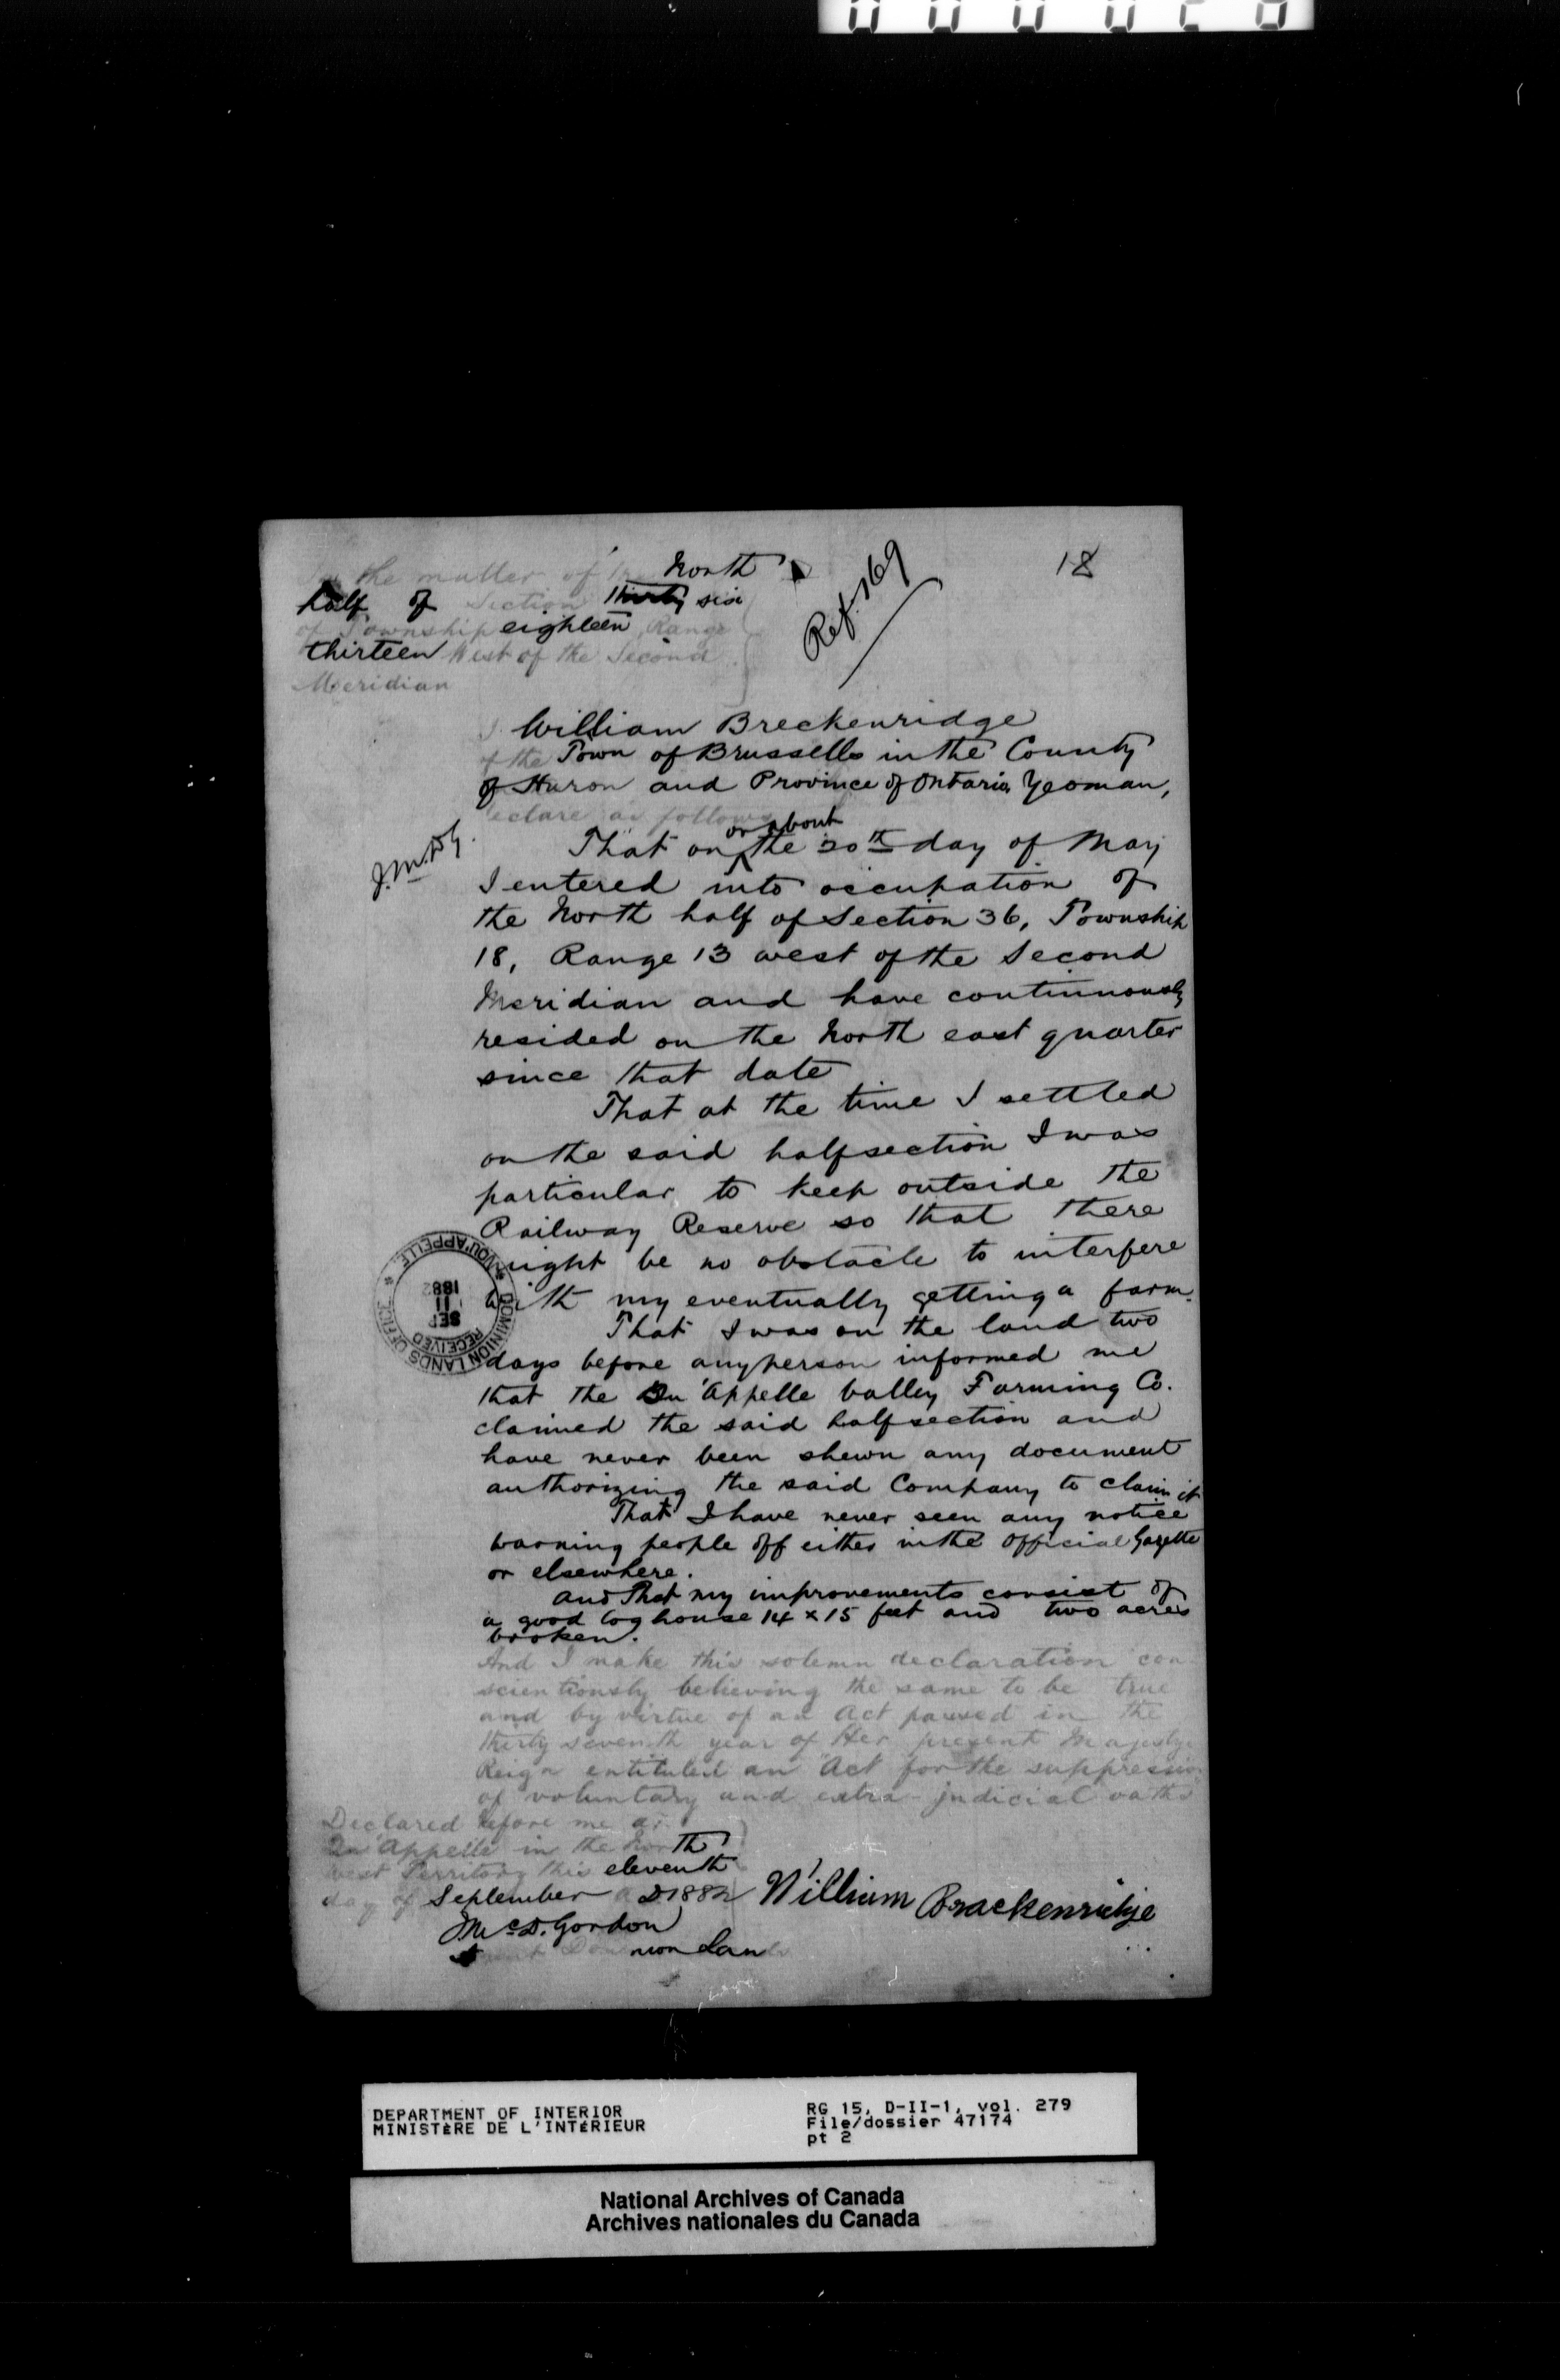 18
Ref. 169
In the matter of the North
half of Section thirty six
of Township eighteen Range
thirteen West of the Second
Meridian
I William Breckenridge
of the Town of Brussells in the County
of Huron and Province of Ontario, Yeoman,
declare as follows
J.McD.G.
or about
That on the 20th day of May
I entered into occupation of
the North half of Section 36, Township
18, Range 13 west of the Second
Meridian and have continuously
resided on the North east quarter
since that date
That at the time I settled
on the said half section I was
particular to keep outside the
Railway Reserve so that there
might be no obstacle to interfere
with my eventually getting a farm.
That I was on the land two
days before any person informed me
that the Qu'Appelle Valley Farming Co.
claimed the said half section and
have never been shewn any document
authorizing the said Company to claim it
That I have never seen any notice
warning people off either in the Official Gazette
or elsewhere.
and That my improvements consist of
a good log house 14 x 15 feet and two acres
broken.
And I make this solemn declaration con
scientiously believing the same to be true
and by virtue of an Act passed in the
thirty seventh year of Her present Majesty's
Reign entituled an Act for the suppression
of voluntary and extra-judicial oaths
Declared before me at
Qu'Appelle in the North
West Territory this eleventh
day of September A D 1882
William Brackenridge
J McD. Gordon
Agent Dominion Lands
DOMINION LANDS OFFICE
QU'APPELLE
RECEIVED
SEP
11
1882
DEPARTMENT OF INTERIOR
MINISTÈRE DE L'INTÉRIEUR
RG 15, D-II-1, vol. 279
File/dossier 47174
pt 2
National Archives of Canada
Archives nationales du Canada